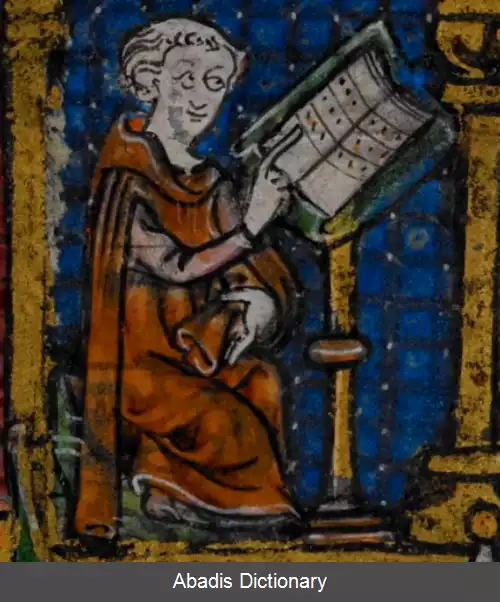 Abadis Dictionary